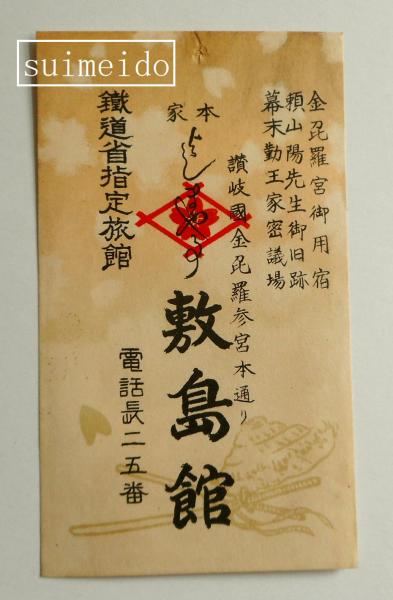 suimeido
金毘羅宮御用宿
頼山陽先生御旧跡
幕末勤王家密議場
讃岐國金毘羅参宮本通り
本家
敷島館
鐵道省指定旅館
電話長二五番